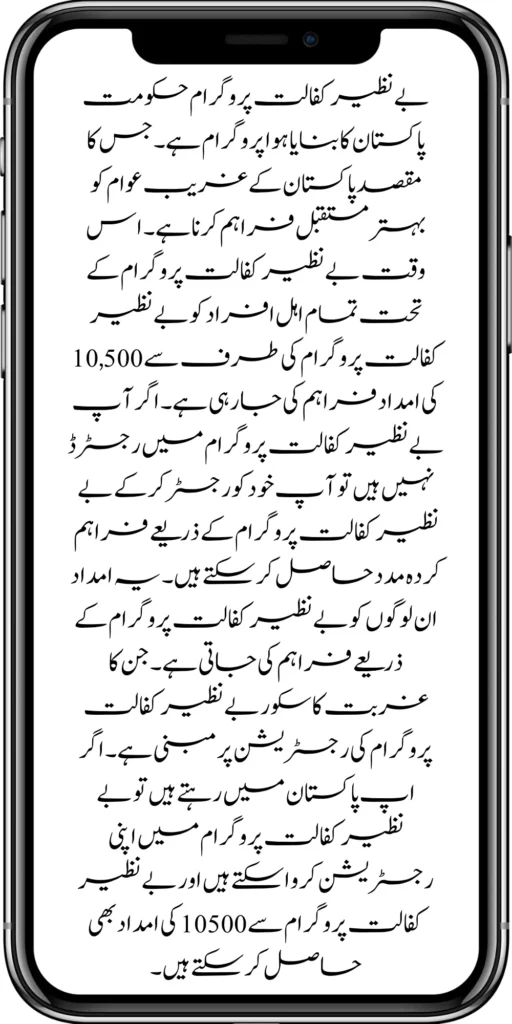 بے نظیر کفالت پروگرام حکومت
پاکستان کا بنایا ہوا پروگرام ہے۔ جس کا
مقصد پاکستان کے غریب عوام کو
بہتر مستقبل فراہم کرنا ہے۔ اس
وقت بے نظیر کفالت پروگرام کے
تحت تمام اہل افراد کو بے نظیر
کفالت پروگرام کی طرف سے 10,500
کی امداد فراہم کی جا رہی ہے۔ اگر آپ
بے نظیر کفالت پروگرام میں رجسٹرڈ
نہیں ہیں تو آپ خود کو رجسٹر کر کے بے
نظیر کفالت پروگرام کے ذریعے فراہم
کردہ مدد حاصل کر سکتے ہیں۔ یہ امداد
ان لوگوں کو بے نظیر کفالت پروگرام کے
ذریعے فراہم کی جاتی ہے۔ جن کا
غربت کا سکور بے نظیر کفالت
پروگرام کی رجسٹریشن پر مبنی ہے۔ اگر
اپ پاکستان میں رہتے ہیں تو بے
نظیر کفالت پروگرام میں اپنی
رجسٹریشن کروا سکتے ہیں اور بے نظیر
کفالت پروگرام سے 10500 کی امداد بھی
حاصل کر سکتے ہیں۔